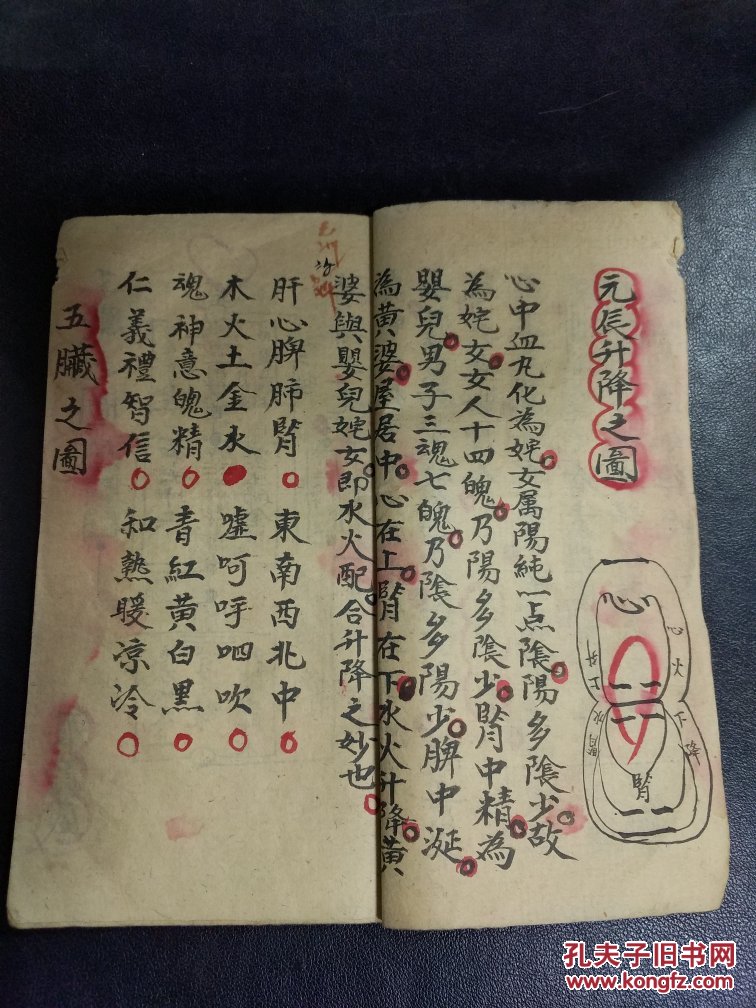 元辰升降之圖
心
心火
上升
腎水
腎
心中血丸化為姹女属陽純一点陰陽多陰少故
為姹女女人十四魄乃陽多陰少腎中精為
嬰兒男子三魂七魄乃陰多陽少脾中涎
為黃婆屋居中心在上腎在下水火升降黃
婆與嬰兒姹女即水火配合升降之妙也
肝心脾肺腎 東南西北中
木火土金水 嘘呵呼呬吹
魂神意魄精 青紅黃白黑
仁義禮智信 和熱暖凉冷
五臟之圖
孔夫子旧书网
www.kongfz.com